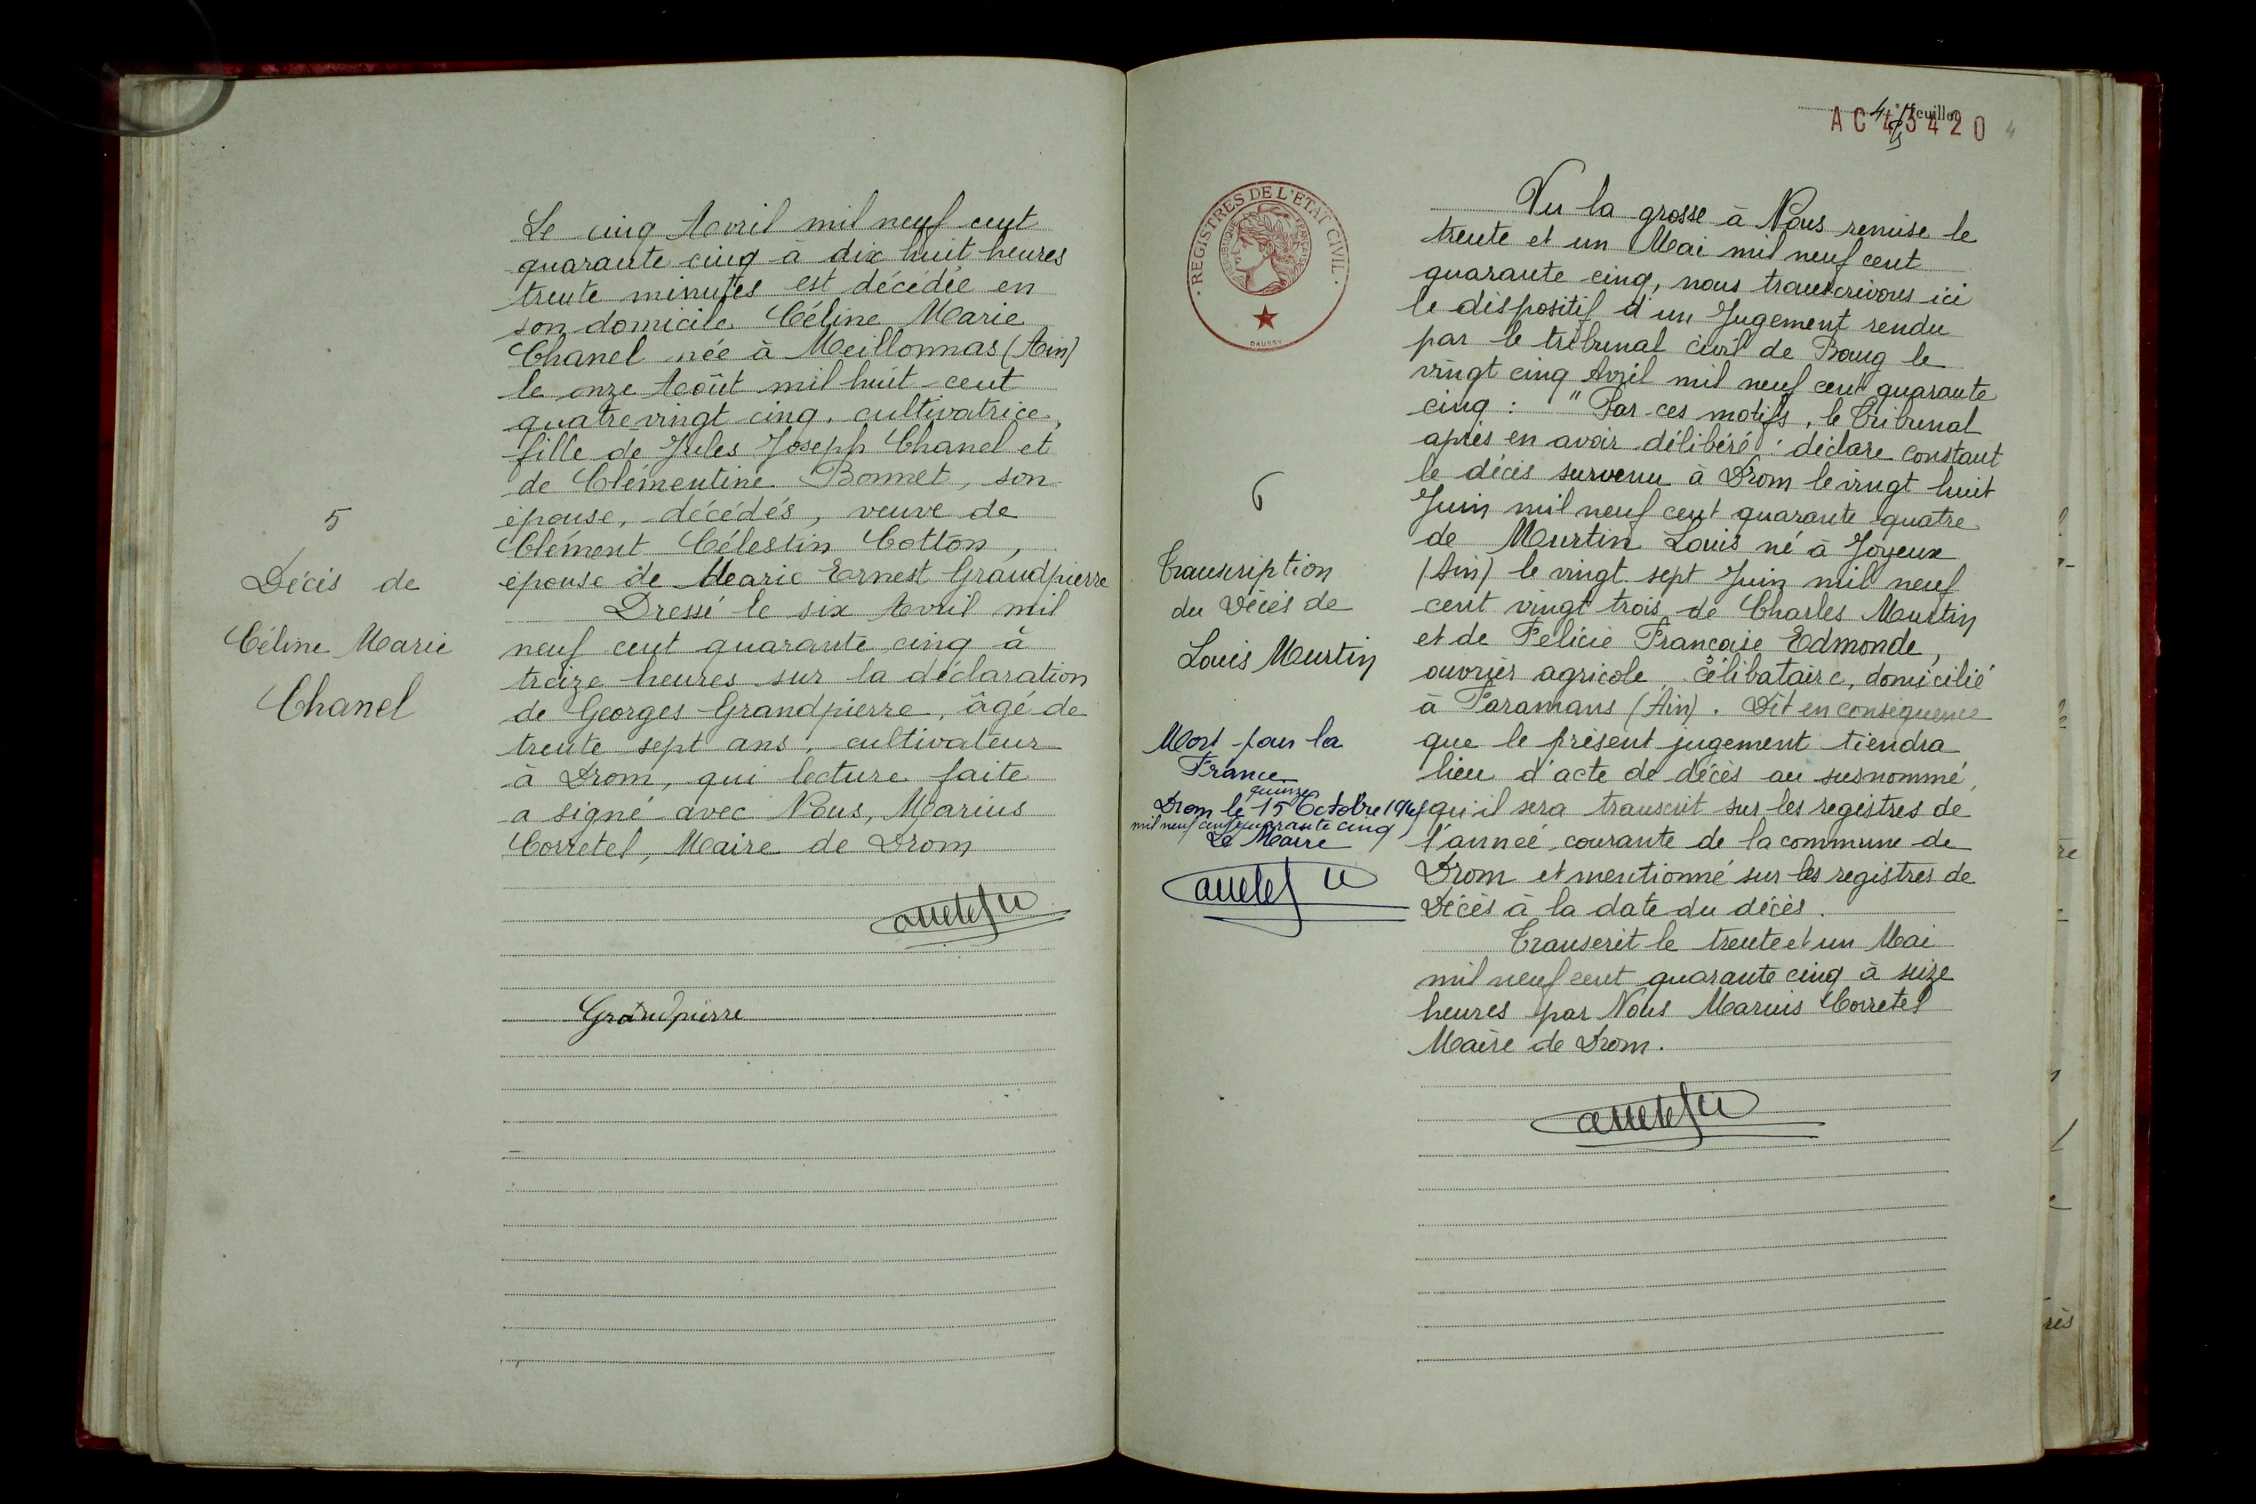 5
Décès de
Céline Marie
Chanel
Le cinq Avril mil neuf cent
quarante cinq à dix huit heures
trente minutes est décédée en
son domicile Céline Marie
Chanel née à Meillonnas (Ain)
le onze Août mil huit-cent
quatre-vingt cinq, cultivatrice,
fille de Jules Joseph Chanel et
de Clémentine Bonnet, son
épouse, décédés, veuve de
Clément Célestin Cotton,
épouse de Marie Ernest Grandpierre
Dressé le six Avril mil
neuf cent quarante cinq à
treize heures sur la déclaration
de Georges Grandpierre, âgé de
trente sept ans, cultivateur
à Drom, qui lecture faite
a signé avec Nous, Marius
Corretel, Maire de Drom
Grandpierre
4
feuillet
AC 43420
4
REGISTRES DE L'ETAT CIVIL
REPUBLIQUE FRANÇAISE
DAUSSY
6
Transcription
du Décès de
Louis Murtin
Mort pour la
France
quinze
Drom le 15 Octobre 1945
mil neuf cent quarante cinq
Le Maire
Vu la grosse à Nous remise le
trente et un Mai mil neuf cent
quarante cinq, nous transcrivons ici
le dispositif d'un Jugement rendu
par le tribunal civil de Bourg le
vingt cinq Avril mil neuf cent quarante
cinq : " Par ces motifs, le Tribunal
après en avoir délibéré : déclare constant
le décès survenu à Drom le vingt huit
Juin mil neuf cent quarante quatre
de Murtin Louis né à Joyeux
(Ain) le vingt sept Juin mil neuf
cent vingt trois de Charles Murtin
et de Felicie Françoise Edmonde,
ouvrier agricole, célibataire, domicilié
à Faramans (Ain). Dit en conséquence
que le présent jugement tiendra
lieu d'acte de décès au susnommé,
qu'il sera transcrit sur les registres de
l'année courante de la commune de
Drom et mentionné sur les registres de
Décès à la date du décès.
Transcrit le trente et un Mai
mil neuf cent quarante cinq à seize
heures par Nous Marius Corretel
Maire de Drom.